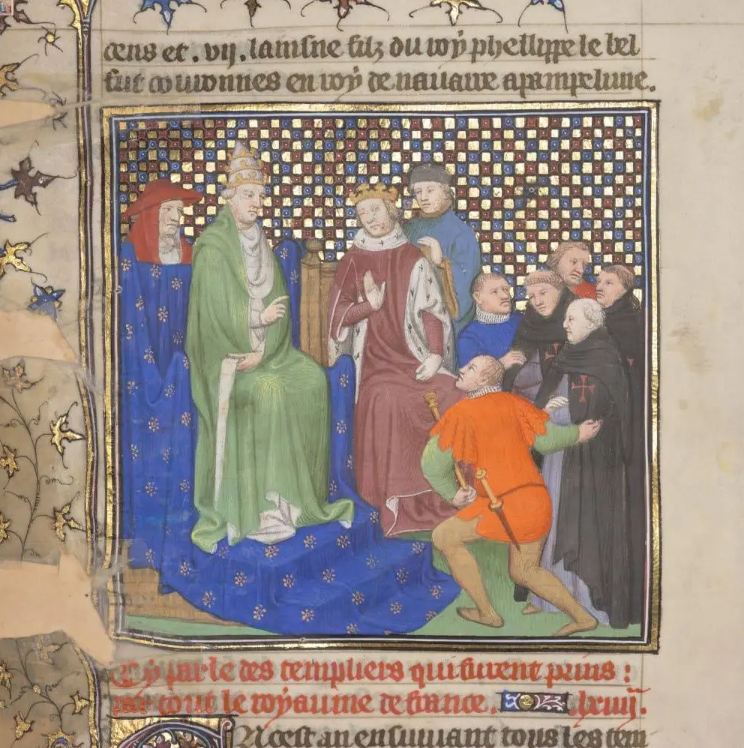 cens et .vij. lainsne filz du roy phellippe le bel
fut couronnes en roy de nauarre a pampelune.
Cy parle des templiers qui furent prins :
par tout le royaume de france. .lxiiij.
En cest an ensuiuant tous les tem